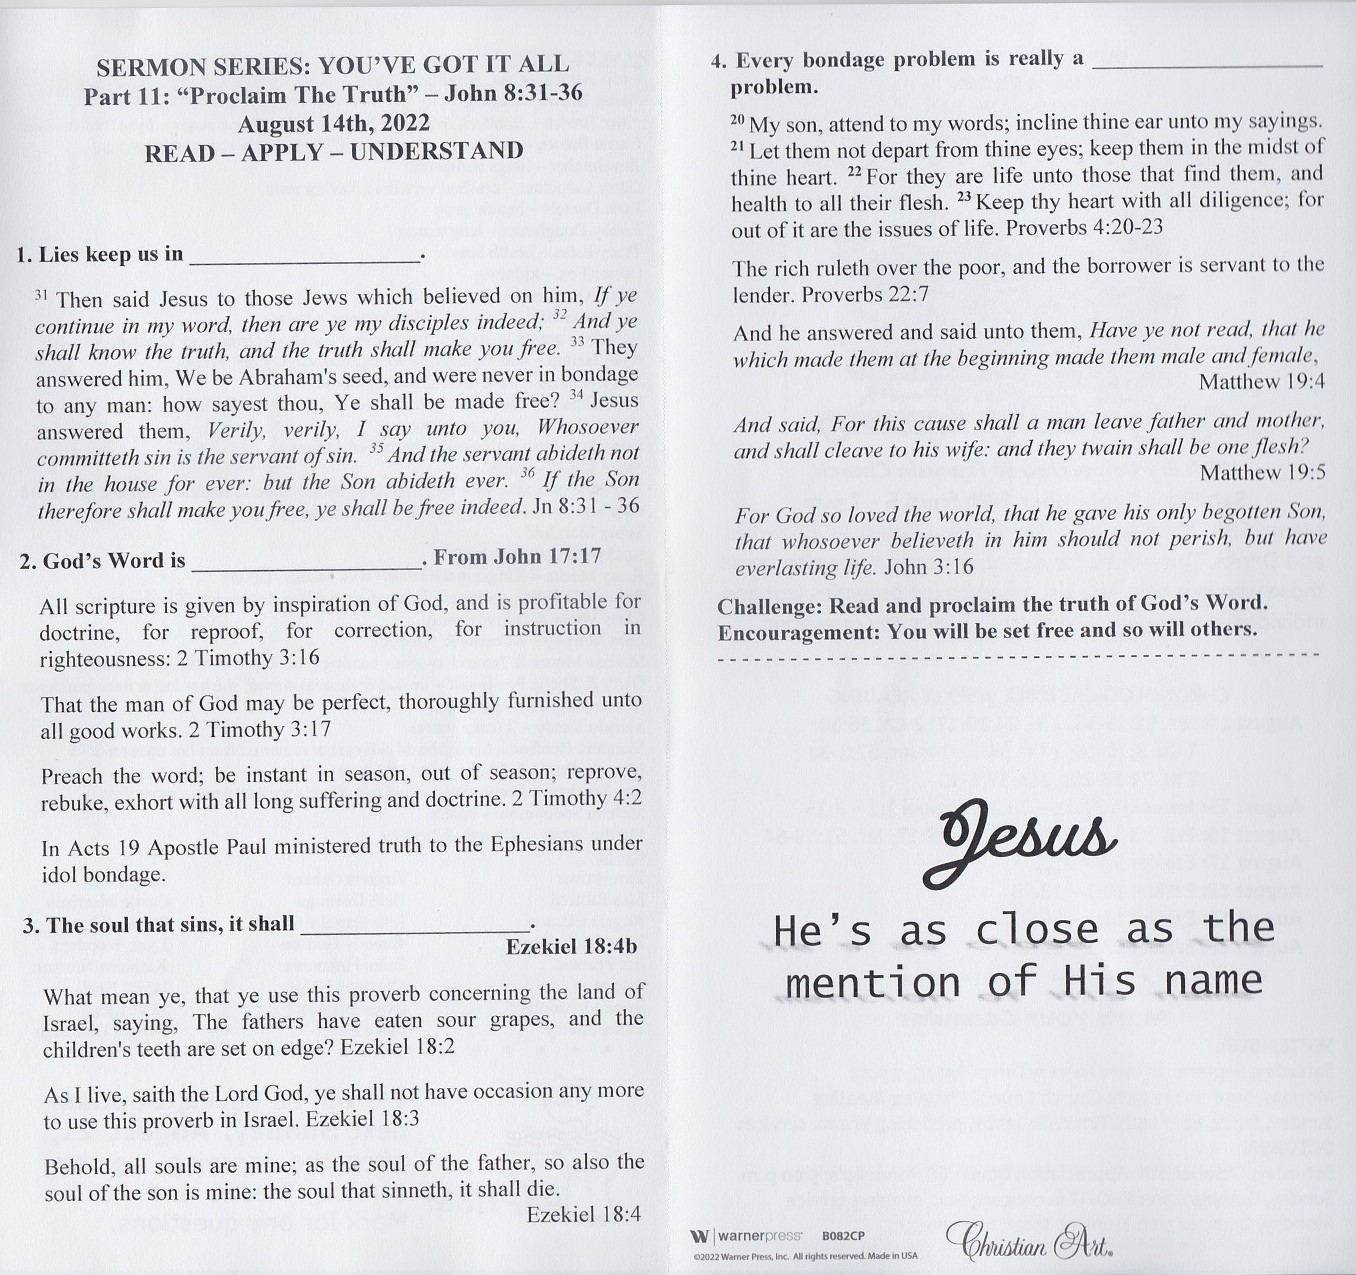 SERMON SERIES: YOU’VE GOT IT ALL
Part 11: “Proclaim The Truth” – John 8:31-36
August 14th, 2022
READ – APPLY – UNDERSTAND
1. Lies keep us in ____________________.
31 Then said Jesus to those Jews which believed on him, If ye
continue in my word, then are ye my disciples indeed; 32 And ye
shall know the truth, and the truth shall make you free. 33 They
answered him, We be Abraham's seed, and were never in bondage
to any man: how sayest thou, Ye shall be made free? 34 Jesus
answered them, Verily, verily, I say unto you, Whosoever
committeth sin is the servant of sin. 35 And the servant abideth not
in the house for ever: but the Son abideth ever. 36 If the Son
therefore shall make you free, ye shall be free indeed. Jn 8:31 - 36
2. God’s Word is ____________________. From John 17:17
All scripture is given by inspiration of God, and is profitable for
doctrine, for reproof, for correction, for instruction in
righteousness: 2 Timothy 3:16
That the man of God may be perfect, thoroughly furnished unto
all good works. 2 Timothy 3:17
Preach the word; be instant in season, out of season; reprove,
rebuke, exhort with all long suffering and doctrine. 2 Timothy 4:2
In Acts 19 Apostle Paul ministered truth to the Ephesians under
idol bondage.
3. The soul that sins, it shall ____________________.
Ezekiel 18:4b
What mean ye, that ye use this proverb concerning the land of
Israel, saying, The fathers have eaten sour grapes, and the
children's teeth are set on edge? Ezekiel 18:2
As I live, saith the Lord God, ye shall not have occasion any more
to use this proverb in Israel. Ezekiel 18:3
Behold, all souls are mine; as the soul of the father, so also the
soul of the son is mine: the soul that sinneth, it shall die.
Ezekiel 18:4
4. Every bondage problem is really a ____________________
problem.
20 My son, attend to my words; incline thine ear unto my sayings.
21 Let them not depart from thine eyes; keep them in the midst of
thine heart. 22 For they are life unto those that find them, and
health to all their flesh. 23 Keep thy heart with all diligence; for
out of it are the issues of life. Proverbs 4:20-23
The rich ruleth over the poor, and the borrower is servant to the
lender. Proverbs 22:7
And he answered and said unto them, Have ye not read, that he
which made them at the beginning made them male and female,
Matthew 19:4
And said, For this cause shall a man leave father and mother,
and shall cleave to his wife: and they twain shall be one flesh?
Matthew 19:5
For God so loved the world, that he gave his only begotten Son,
that whosoever believeth in him should not perish, but have
everlasting life. John 3:16
Challenge: Read and proclaim the truth of God’s Word.
Encouragement: You will be set free and so will others.
Jesus
He’s as close as the
mention of His name
W warnerpress B082CP
©2022 Warner Press, Inc. All rights reserved. Made in USA
Christian Art.